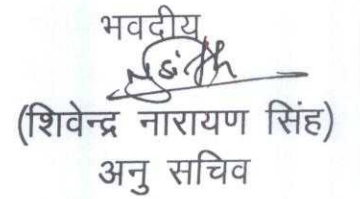 भवदीय
(शिवेन्द्र नारायण सिंह)
अनु सचिव